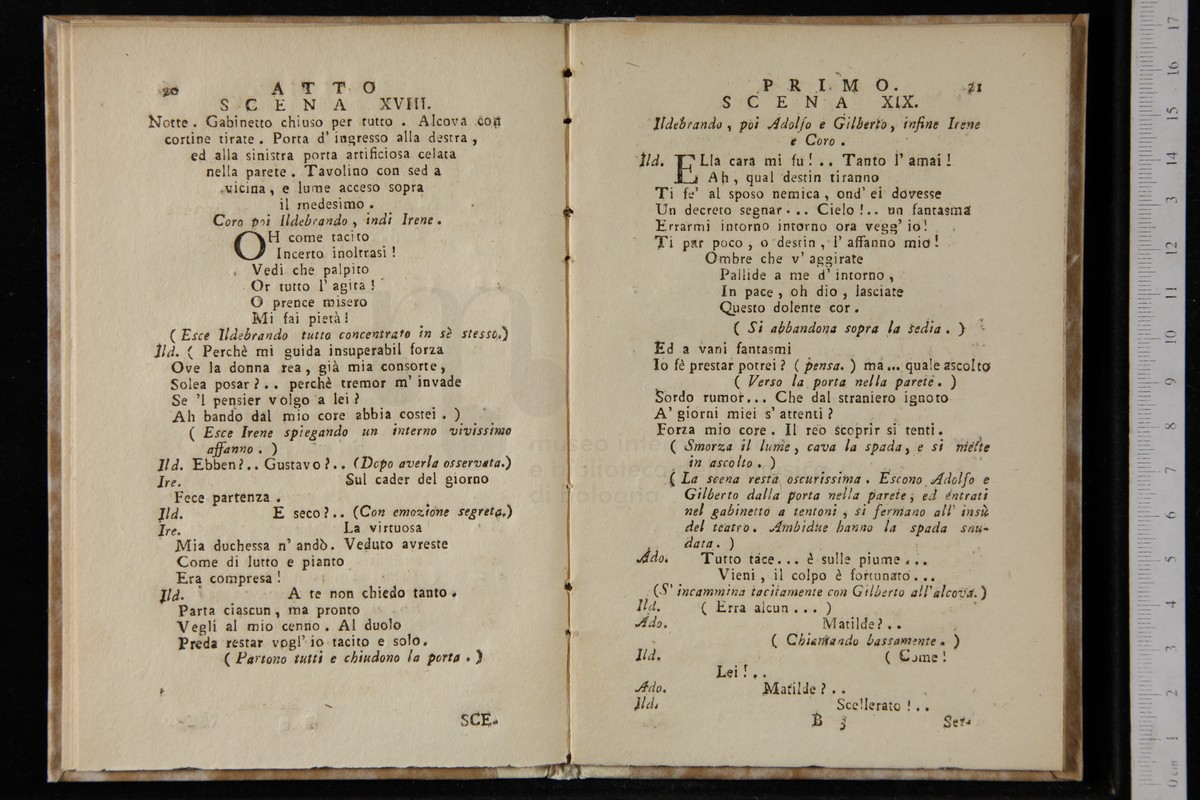 20
ATTO
SCENA XVIII.
Notte . Gabinetto chiuso per tutto . Alcova con
cortine tirate . Porta d' ingresso alla destra ,
ed alla sinistra porta artificiosa celata
nella parete . Tavolino con sed a
vicina , e lume acceso sopra
il medesimo .
Coro poi Ildebrando , indi Irene .
OH come tacito
Incerto inoltrasi !
Vedi che palpito
Or tutto l' agita !
O prence misero
Mi fai pietà !
( Esce Ildebrando tutto concentrato in sè stesso.)
Ild. ( Perchè mi guida insuperabil forza
Ove la donna rea , già mia consorte ,
Solea posar ? . . perchè tremor m' invade
Se 'l pensier volgo a lei ?
Ah bando dal mio core abbia costei . )
( Esce Irene spiegando un interno vivissimo
affanno . )
Ild. Ebben ? . . Gustavo ? . . (Dopo averla osservata.)
Ire. Sul cader del giorno
Fece partenza .
Ild. E seco ? . . (Con emozione segreta.)
Ire. La virtuosa
Mia duchessa n' andò . Veduto avreste
Come di lutto e pianto
Era compresa !
Ild. A te non chiedo tanto .
Parta ciascun , ma pronto
Vegli al mio cenno . Al duolo
Preda restar vogl' io tacito e solo .
( Partono tutti e chiudono la porta . )
SCE-
PRIMO.
21
SCENA XIX.
Ildebrando , poi Adolfo e Gilberto , infine Irene
e Coro .
Ild. ELla cara mi fu ! . . Tanto l' amai !
Ah , qual destin tiranno
Ti fe' al sposo nemica , ond' ei dovesse
Un decreto segnar . . . Cielo ! . . un fantasma
Errarmi intorno intorno ora vegg' io !
Ti par poco , o destin , l' affanno mio !
Ombre che v' aggirate
Pallide a me d' intorno ,
In pace , oh dio , lasciate
Questo dolente cor .
( Si abbandona sopra la sedia . )
Ed a vani fantasmi
Io fè prestar potrei ? ( pensa. ) ma ... quale ascolto
( Verso la porta nella parete . )
Sordo rumor ... Che dal straniero ignoto
A' giorni miei s' attenti ?
Forza mio core . Il reo scoprir si tenti .
( Smorza il lume , cava la spada , e si mette
in ascolto . )
( La scena resta oscurissima . Escono Adolfo e
Gilberto dalla porta nella parete , ed entrati
nel gabinetto a tentoni , si fermano all' insù
del teatro . Ambidue hanno la spada snu-
data . )
Ado. Tutto tace ... è sulle piume ...
Vieni , il colpo è fortunato ...
(S' incammina tacitamente con Gilberto all' alcova.)
Ild. ( Erra alcun ... )
Ado. Matilde ? . .
( Chiamando bassamente . )
Ild. ( Come !
Lei ! . .
Ado. Matilde ? . .
Ild. Scellerato ! . .
B 3 Set-